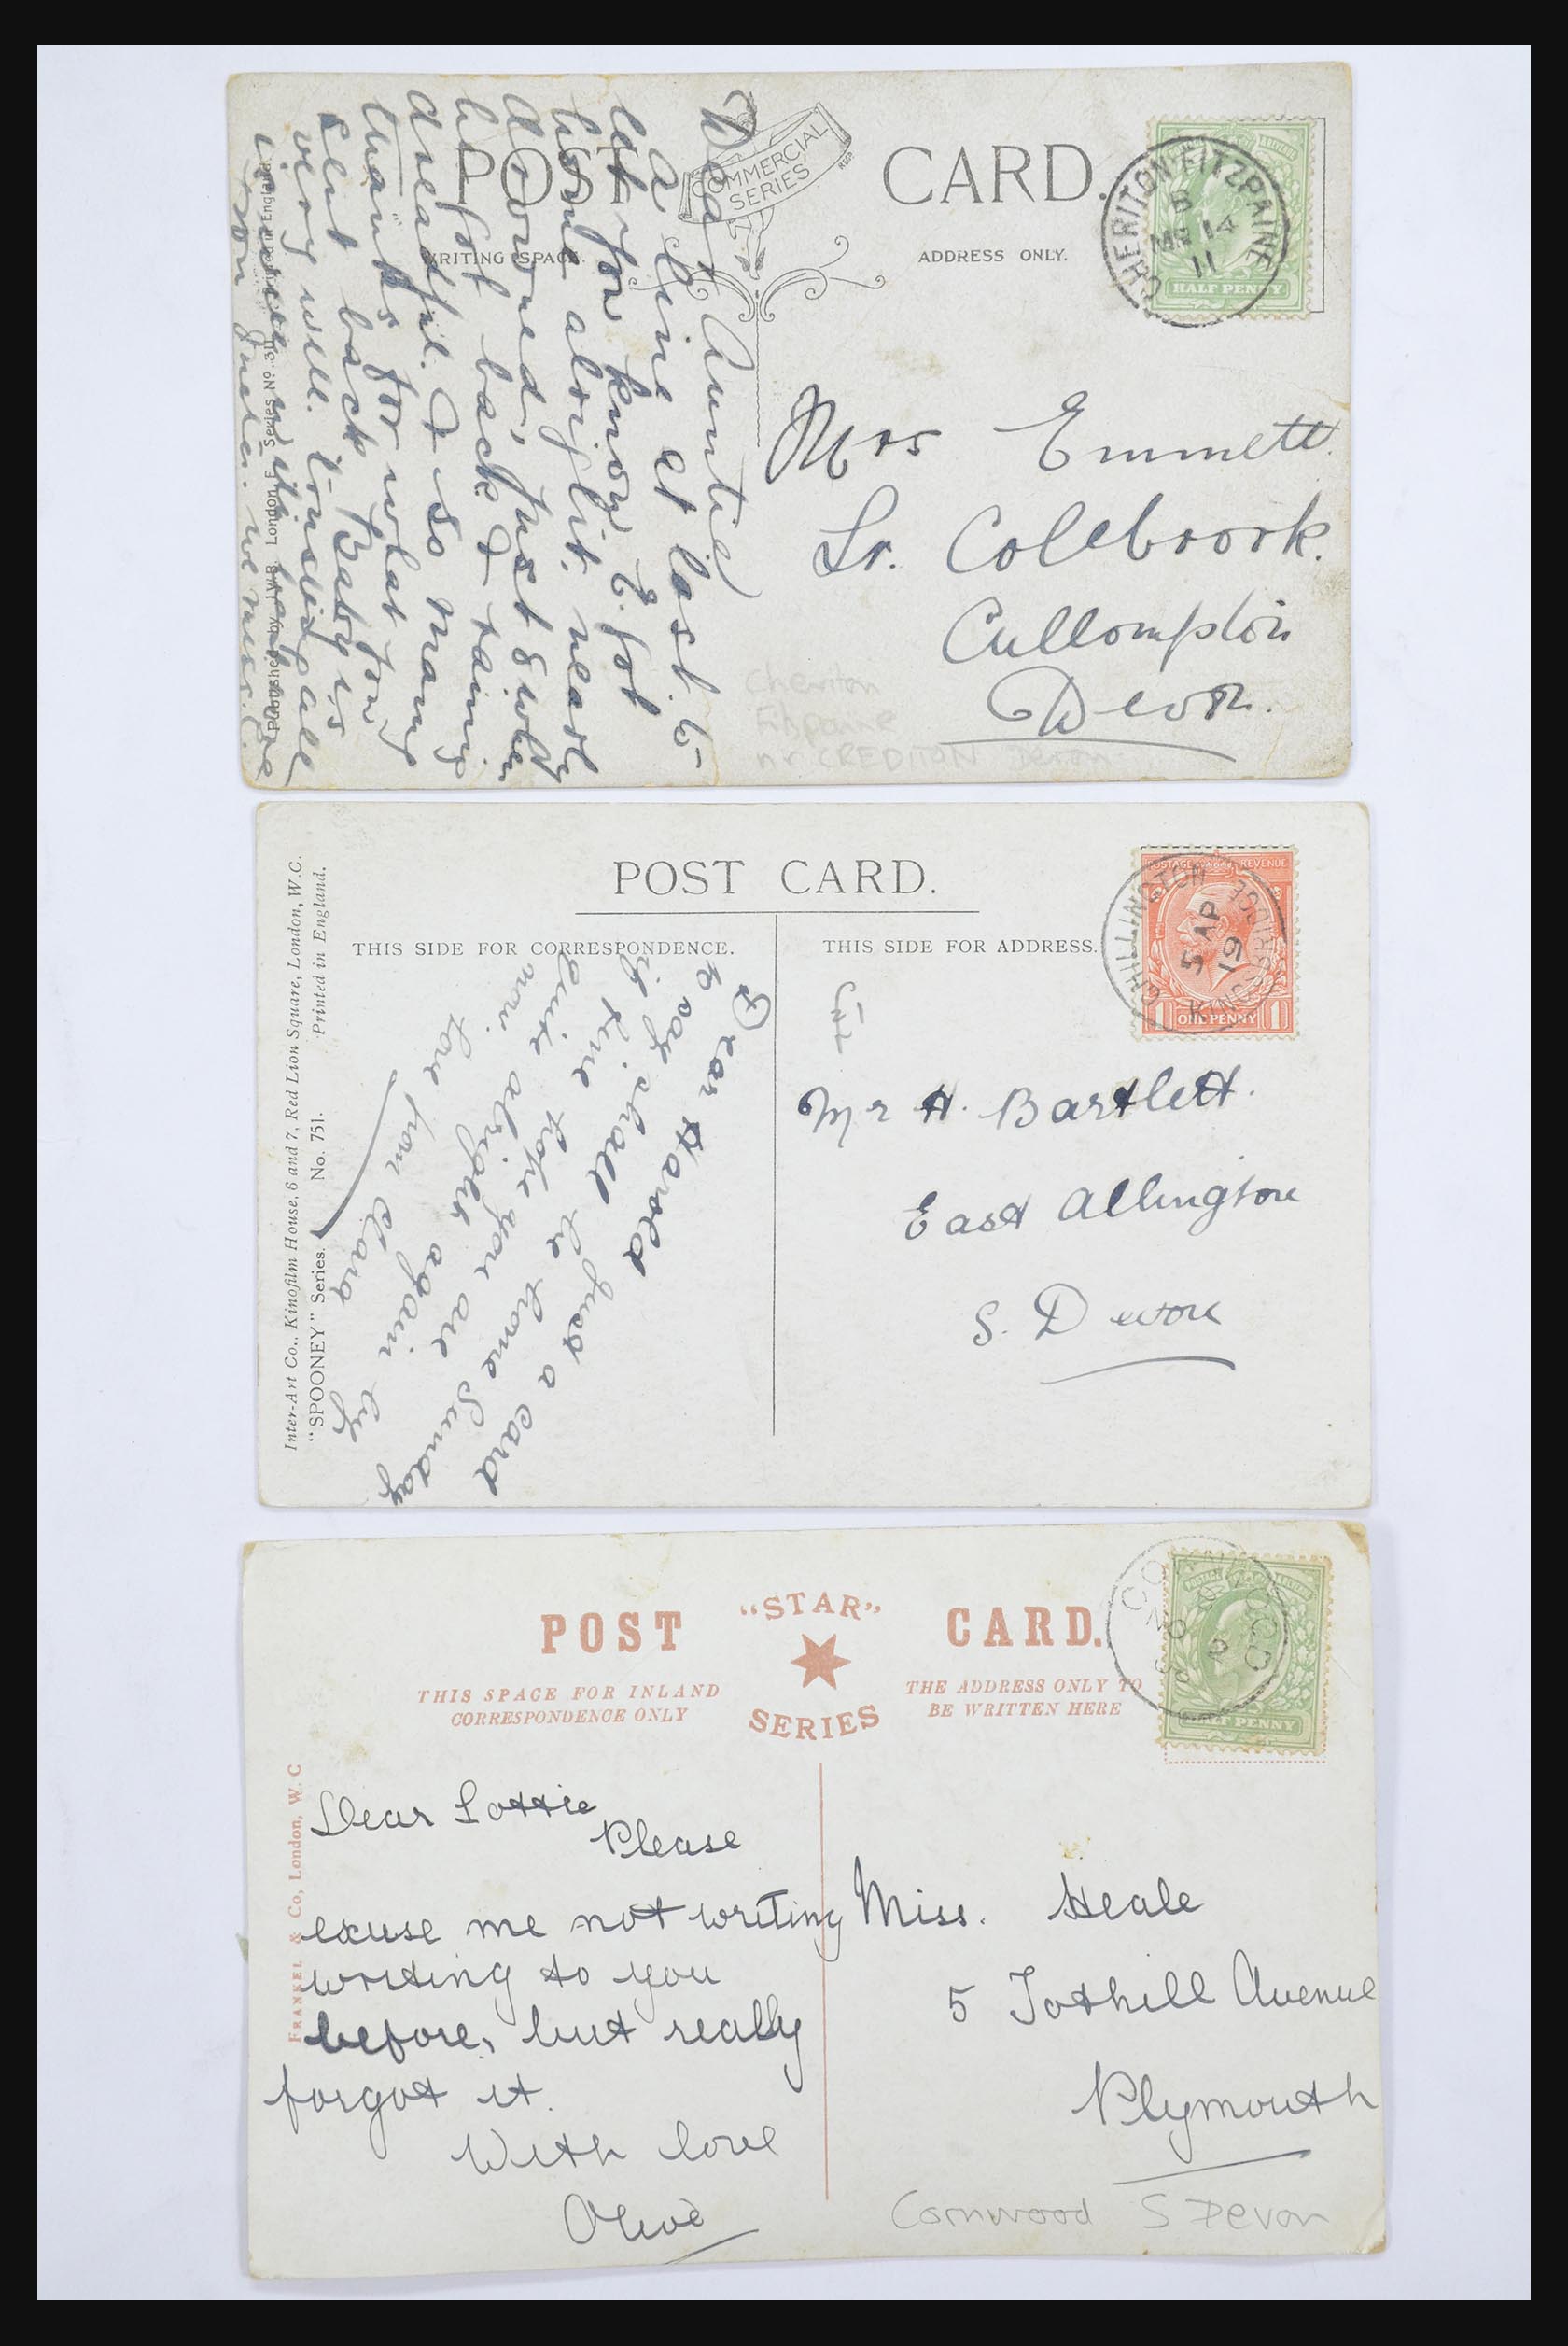 POST CARD.
COMMERCIAL
SERIES
WRITING SPACE.
ADDRESS ONLY.
CHERITON FITZPAINE
B
MR 14
11
HALF PENNY
Dear Auntie
a line at last. to
let you know E. got
home alright. nearly
drowned, just & when
he got back & raining
dreadful. & so many
thanks for what you
sent back Baby is
very well.
Published by J.W.B. London E. Series No. 311
Mrs Emmett.
Lr. Colebrook.
Cullompton
Devon.
Cheriton
Fitzpaine
nr CREDITON Devon
POST CARD.
THIS SIDE FOR CORRESPONDENCE.
THIS SIDE FOR ADDRESS.
POSTAGE REVENUE
1 ONE PENNY 1
CHILLINGTON KINGSBRIDGE
5 AP
19
Inter-Art Co., Kinofilm House, 6 and 7, Red Lion Square, London, W.C.
"SPOONEY" Series. No. 751. Printed in England.
Dear Harold
Just a card
to say shall be home Sunday
if fine hope you are
quite alright again by
now.
love from Clara
Mr H. Bartlett.
East Allington
S. Devon
POST CARD.
"STAR"
SERIES
THIS SPACE FOR INLAND
CORRESPONDENCE ONLY
THE ADDRESS ONLY TO
BE WRITTEN HERE
CORNWOOD
NO 2
HALF PENNY
FRANKEL & Co, London, W.C
Dear Lottie
Please
excuse me not writing
writing to you
before, but really
forgot it.
With love
Olive
Miss. Heale
5 Tothill Avenue
Plymouth
Cornwood S Devon